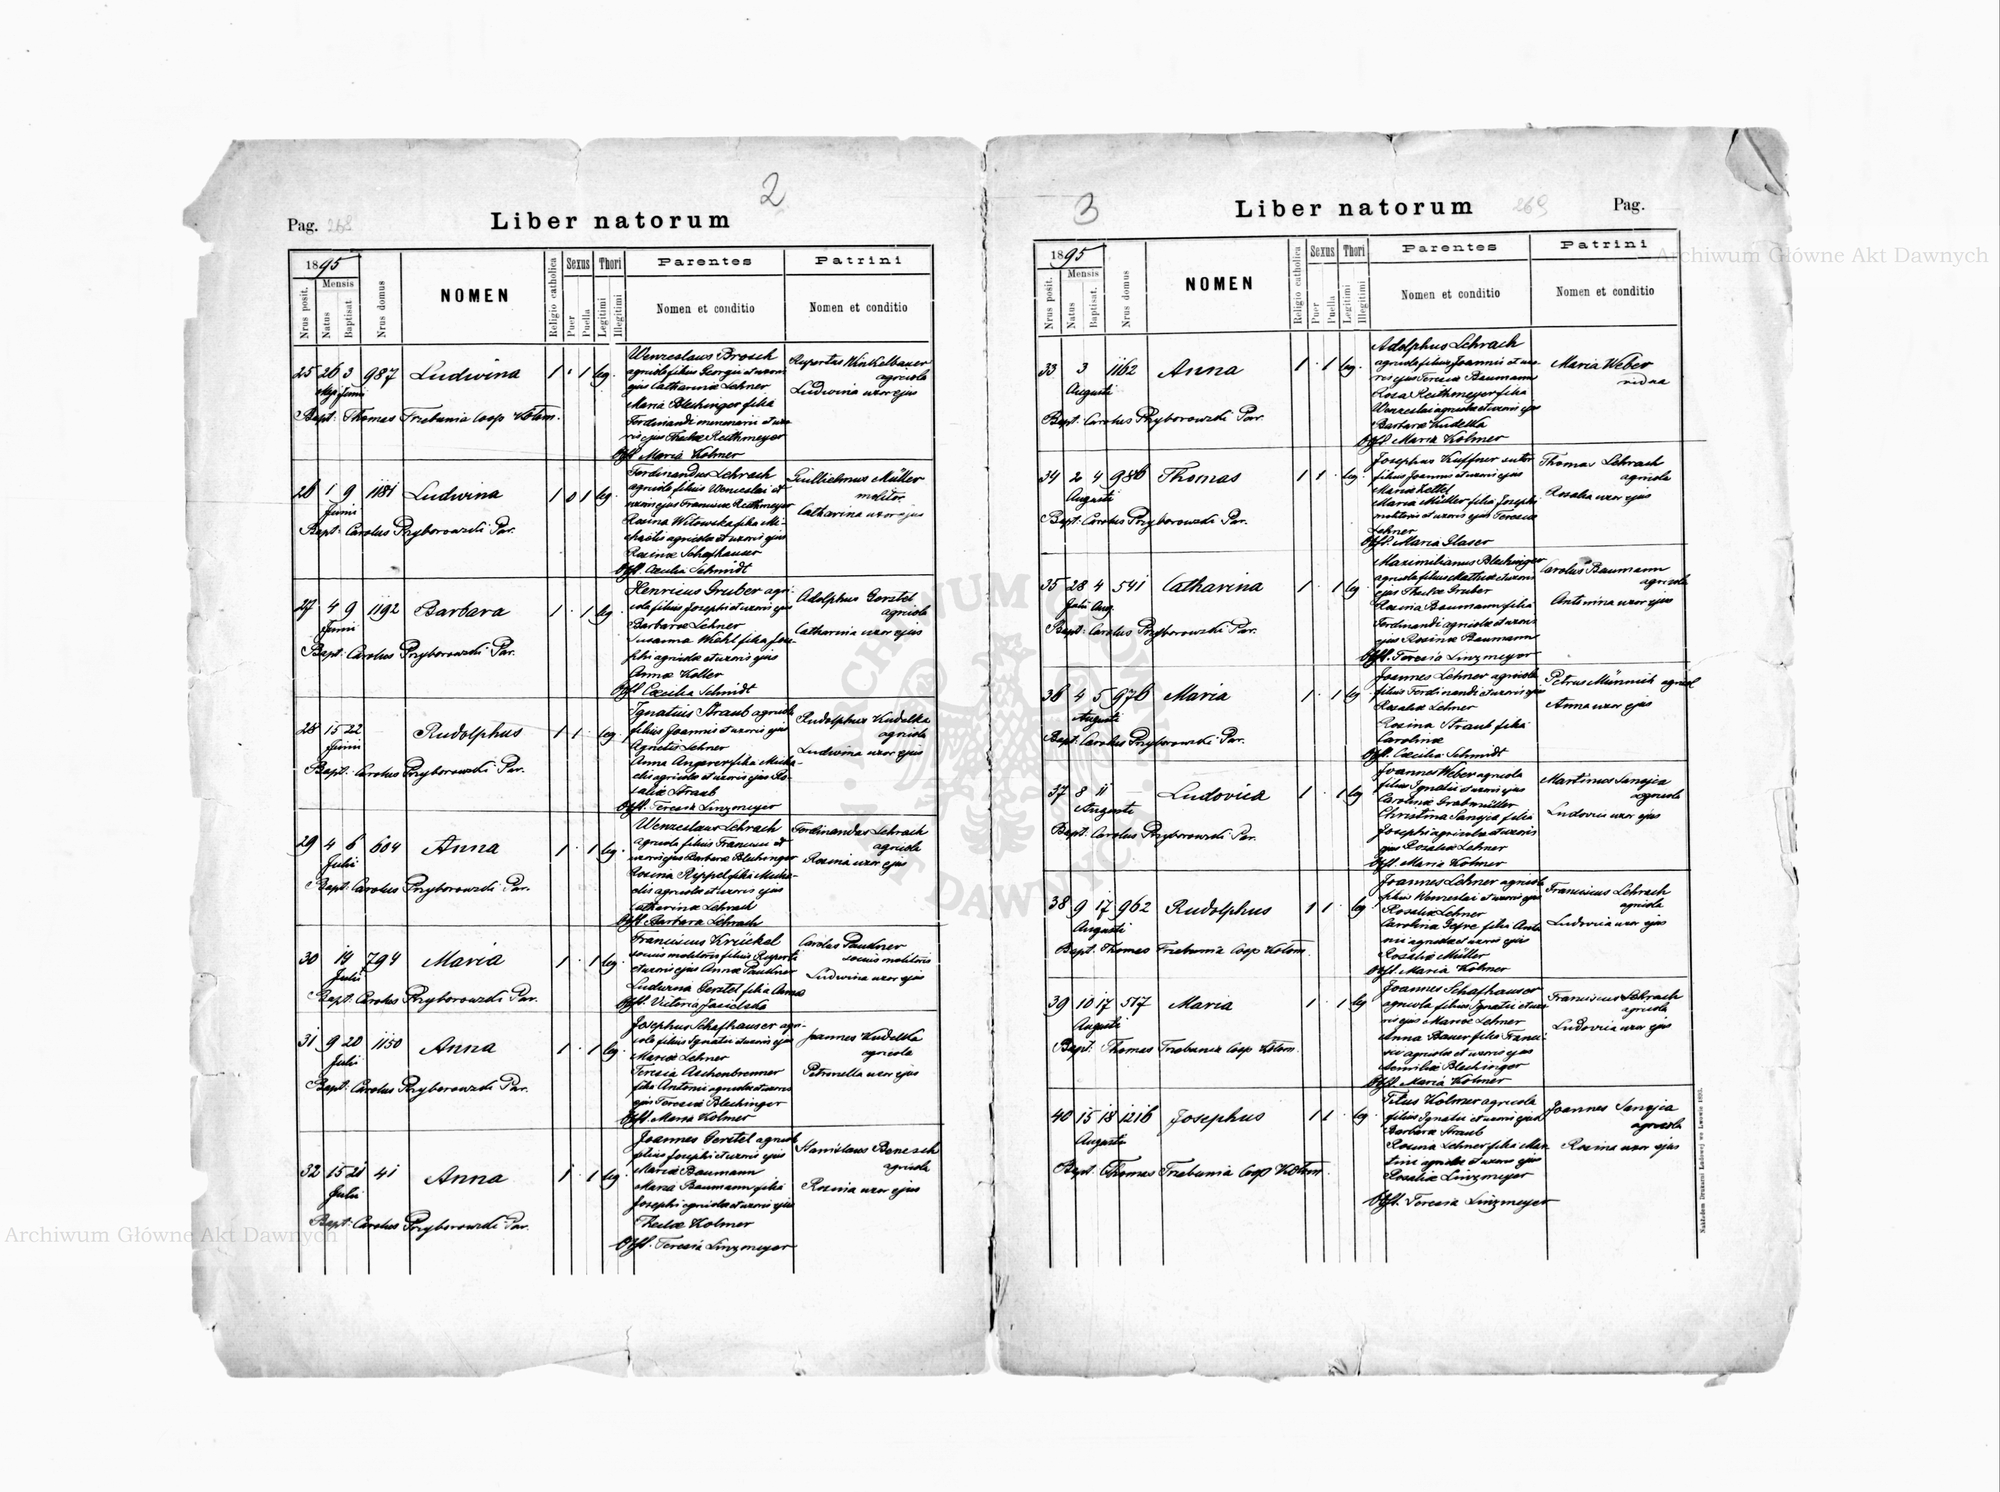 2
Pag. 268
Liber natorum
1895
Mensis
Nrus posit.
Natus
Baptisat.
Nrus domus
NOMEN
Religio catholica
Sexus
Puer
Puella
Thori
Legitimi
Illegitimi
Parentes
Nomen et conditio
Patrini
Nomen et conditio
25 26 3 987 Ludwina 1 1 leg.
Maji Junii
Bapt: Thomas Trzebunia Coop
Wenzeslaus Brosch
agricola filius Georgii et uxoris
ejus Catharinæ Lehner
Maria Blechinger filia
Ferdinandi et uxo
ris ejus Theklæ Reithmeyer
Obst. Maria Kolmer
Rupertus Winkelbauer
agricola
Ludwina uxor ejus
26 1 9 1181 Ludwina 1 0 1 leg
Junii
Bapt: Carolus Przyborowski Par.
Ferdinandus Lehrach
agricola filius Wenceslai et
uxoris ejus Franciscæ Reithmeyer
Rosina Witowska filia Mi-
chaelis agricolæ et uxoris ejus
Rosinæ Schafhauser
Obst. Cæcilia Schmidt
Guillielmus Müller
molitor.
Catharina uxor ejus
27 4 9 1192 Barbara 1 1 leg
Junii
Bapt: Carolus Przyborowski Par.
Henricus Gruber agri-
cola filius Josephi et uxoris ejus
Barbaræ Lehner
Susanna Wehl filia Jose
phi agricolæ et uxoris ejus
Annæ Koller
Obst. Cæcilia Schmidt
Adolphus Gerstel
agricola
Catharina uxor ejus
28 15 22 Rudolphus 1 1 leg
Junii
Bapt: Carolus Przyborowski Par.
Ignatius Straub agricola
filius Joannis et uxoris ejus
Agnetis Lehner
Anna Angerer filia Micha-
elis agricolæ et uxoris ejus Ro-
saliæ Straub
Obst. Teresia Linzmeyer
Rudolphus Kudelka
agricola
Ludwina uxor ejus
29 4 6 604 Anna 1 1 leg
Julii
Bapt: Carolus Przyborowski Par.
Wenzeslaus Lehrach
agricola filius Francisci et
uxoris ejus Barbaræ Blechinger
Rosina Reppel filia Micha-
elis agricolæ et uxoris ejus
Catharinæ Lehrach
Obst. Barbara Lehrach
Ferdinandus Lehrach
agricola
Rosina uxor ejus
30 14 794 Maria 1 1 leg
Julii
Bapt: Carolus Przyborowski Par.
Franciscus Krückel
socius molitoris filius Ruperti
et uxoris ejus Annæ Paukner
Ludwina Gerstel filia Annæ
Obst. Victoria
Carolus Paukner
socius molitoris
Ludwina uxor ejus
31 9 20 1150 Anna 1 1 leg
Julii
Bapt: Carolus Przyborowski Par.
Josephus Schafhauser agri-
cola filius Ignatii et uxoris ejus
Mariæ Lehner
Teresia Aschenbrenner
filia Antonii agricolæ et uxoris
ejus Teresiæ Blechinger
Obst. Maria Kolmer
Joannes Kudelka
agricola
Petronella uxor ejus
32 15 21 41 Anna 1 1 leg
Julii
Bapt: Carolus Przyborowski Par.
Joannes Gerstel agricola
filius Josephi et uxoris ejus
Mariæ Baumann
Maria Baumann filia
Josephi agricolæ et uxoris ejus
Theklæ Kolmer
Obst. Teresia Linzmeyer
Stanislaus Benesch
agricola
Rosina uxor ejus
3
Liber natorum
269
Pag.
1895
Mensis
Nrus posit.
Natus
Baptisat.
Nrus domus
NOMEN
Religio catholica
Sexus
Puer
Puella
Thori
Legitimi
Illegitimi
Parentes
Nomen et conditio
Patrini
Nomen et conditio
33 3 1162 Anna 1 1 leg.
Augusti
Bapt: Carolus Przyborowski Par.
Adolphus Lehrach
agricola filius Joannis et uxo-
ris ejus Teresiæ Baumann
Rosa Reithmeyer filia
Wenzeslai agricolæ et uxoris ejus
Barbaræ Kudelka
Obst. Maria Kolmer
Maria Weber
vidua
34 2 4 986 Thomas 1 1 leg
Augusti
Bapt: Carolus Przyborowski Par.
Josephus Kuffner sutor
filius Joannis et uxoris ejus
Mariæ Zettel
Maria Müller filia Josephi
molitoris et uxoris ejus Teresiæ
Lehner
Obst. Maria Glaser
Thomas Lehrach
agricola
Rosalia uxor ejus
35 28 4 541 Catharina 1 1 leg
Julii Aug.
Bapt: Carolus Przyborowski Par.
Maximilianus Blechinger
agricola filius Mathiæ et uxoris
ejus Theklæ Gruber
Rosina Baumann filia
Ferdinandi agricolæ et uxoris
ejus Rosinæ Baumann
Obst. Teresia Linzmeyer
Carolus Baumann
agricola
Antonina uxor ejus
36 4 5 976 Maria 1 1 leg
Augusti
Bapt: Carolus Przyborowski Par.
Joannes Lehner agricola
filius Ferdinandi et uxoris ejus
Rosaliæ Lehner
Rosina Straub filia
Carolinæ
Obst. Cæcilia Schmidt
Petrus Münnich agricol
Anna uxor ejus
37 8 11 Ludovica 1 1 leg
Augusti
Bapt: Carolus Przyborowski Par.
Joannes Weber agricola
filius Ignatii et uxoris ejus
Carolinæ Grabmüller
Christina Sanojca filia
Josephi agricolæ et uxoris
ejus Rosaliæ Lehner
Obst. Maria Kolmer
Martinus Sanojca
agricola
Ludovica uxor ejus
38 9 17 962 Rudolphus 1 1 leg
Augusti
Bapt: Thomas Trzebunia Coop
Joannes Lehner agricola
filius Wenzeslai et uxoris ejus
Rosaliæ Lehner
Carolina filia Anto
nii agricolæ et uxoris ejus
Rosaliæ Müller
Obst. Maria Kolmer
Franciscus Lehrach
agricola
Ludovica uxor ejus
39 10 17 517 Maria 1 1 leg
Augusti
Bapt: Thomas Trzebunia Coop
Joannes Schafhauser
agricola filius Ignatii et uxo
ris ejus Mariæ Lehner
Anna Bauer filia Franci-
sci agricolæ et uxoris ejus
Aemiliæ Blechinger
Obst. Maria Kolmer
Franciscus Lehrach
agricola
Ludovica uxor ejus
40 15 18 1216 Josephus 1 1 leg
Augusti
Bapt: Thomas Trzebunia Coop
Titus Kolmer agricola
filius Ignatii et uxoris ejus
Barbaræ Straub
Rosina Lehner filia Mar
tini agricolæ et uxoris ejus
Rosaliæ Linzmeyer
Obst. Teresia Linzmeyer
Joannes Sanojca
agricola
Rosina uxor ejus
Nakładem Drukarni Ludowej we Lwowie 1893.
Archiwum Główne Akt Dawnych
Archiwum Główne Akt Dawnych
ARCHIWUM GŁÓWNE
AKT DAWNYCH